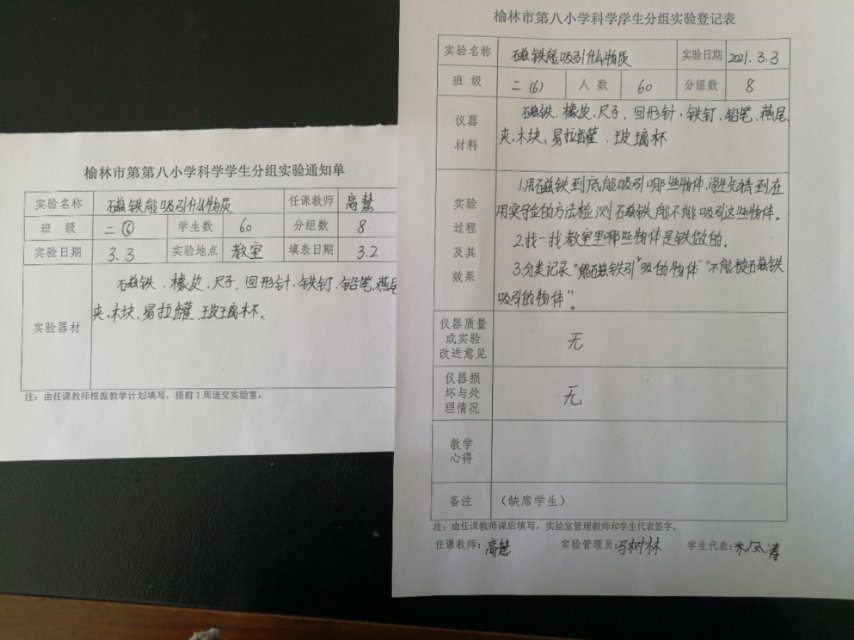 榆林市第第八小学科学学生分组实验通知单
实验名称 磁铁能吸引什么物质 任课教师 高慧
班 级 二⑥ 学生数 60 分组数 8
实验日期 3.3 实验地点 教室 填表日期 3.2
实验器材
磁铁、橡皮、尺子、回形针、铁钉、铅笔、燕尾
夹、木块、易拉罐、玻璃杯、
注:由任课教师根据教学计划填写,提前1周送交实验室。
榆林市第八小学科学学生分组实验登记表
实验名称 磁铁能吸引什么物质 实验日期 2021.3.3
班 级 二(6) 人 数 60 分组数 8
仪器
材料
磁铁、橡皮、尺子、回形针、铁钉、铅笔、燕尾
夹、木块、易拉罐、玻璃杯
实验
过程
及其
效果
1.用磁铁到底能吸引哪些物体,
用实验的方法检测磁铁能不能吸引这些物体。
2.找一找教室里哪些物体是铁做的。
3.分类记录“能磁铁引吸的物体”“不能被磁铁
吸引的物体”。
仪器质量
或实验
改进意见
无
仪器损
坏与处
理情况
无
教学
心得
备注 (缺席学生)
注:由任课教师课后填写,实验室管理教师和学生代表签字。
任课教师:高慧 实验管理员:马树林 学生代表: